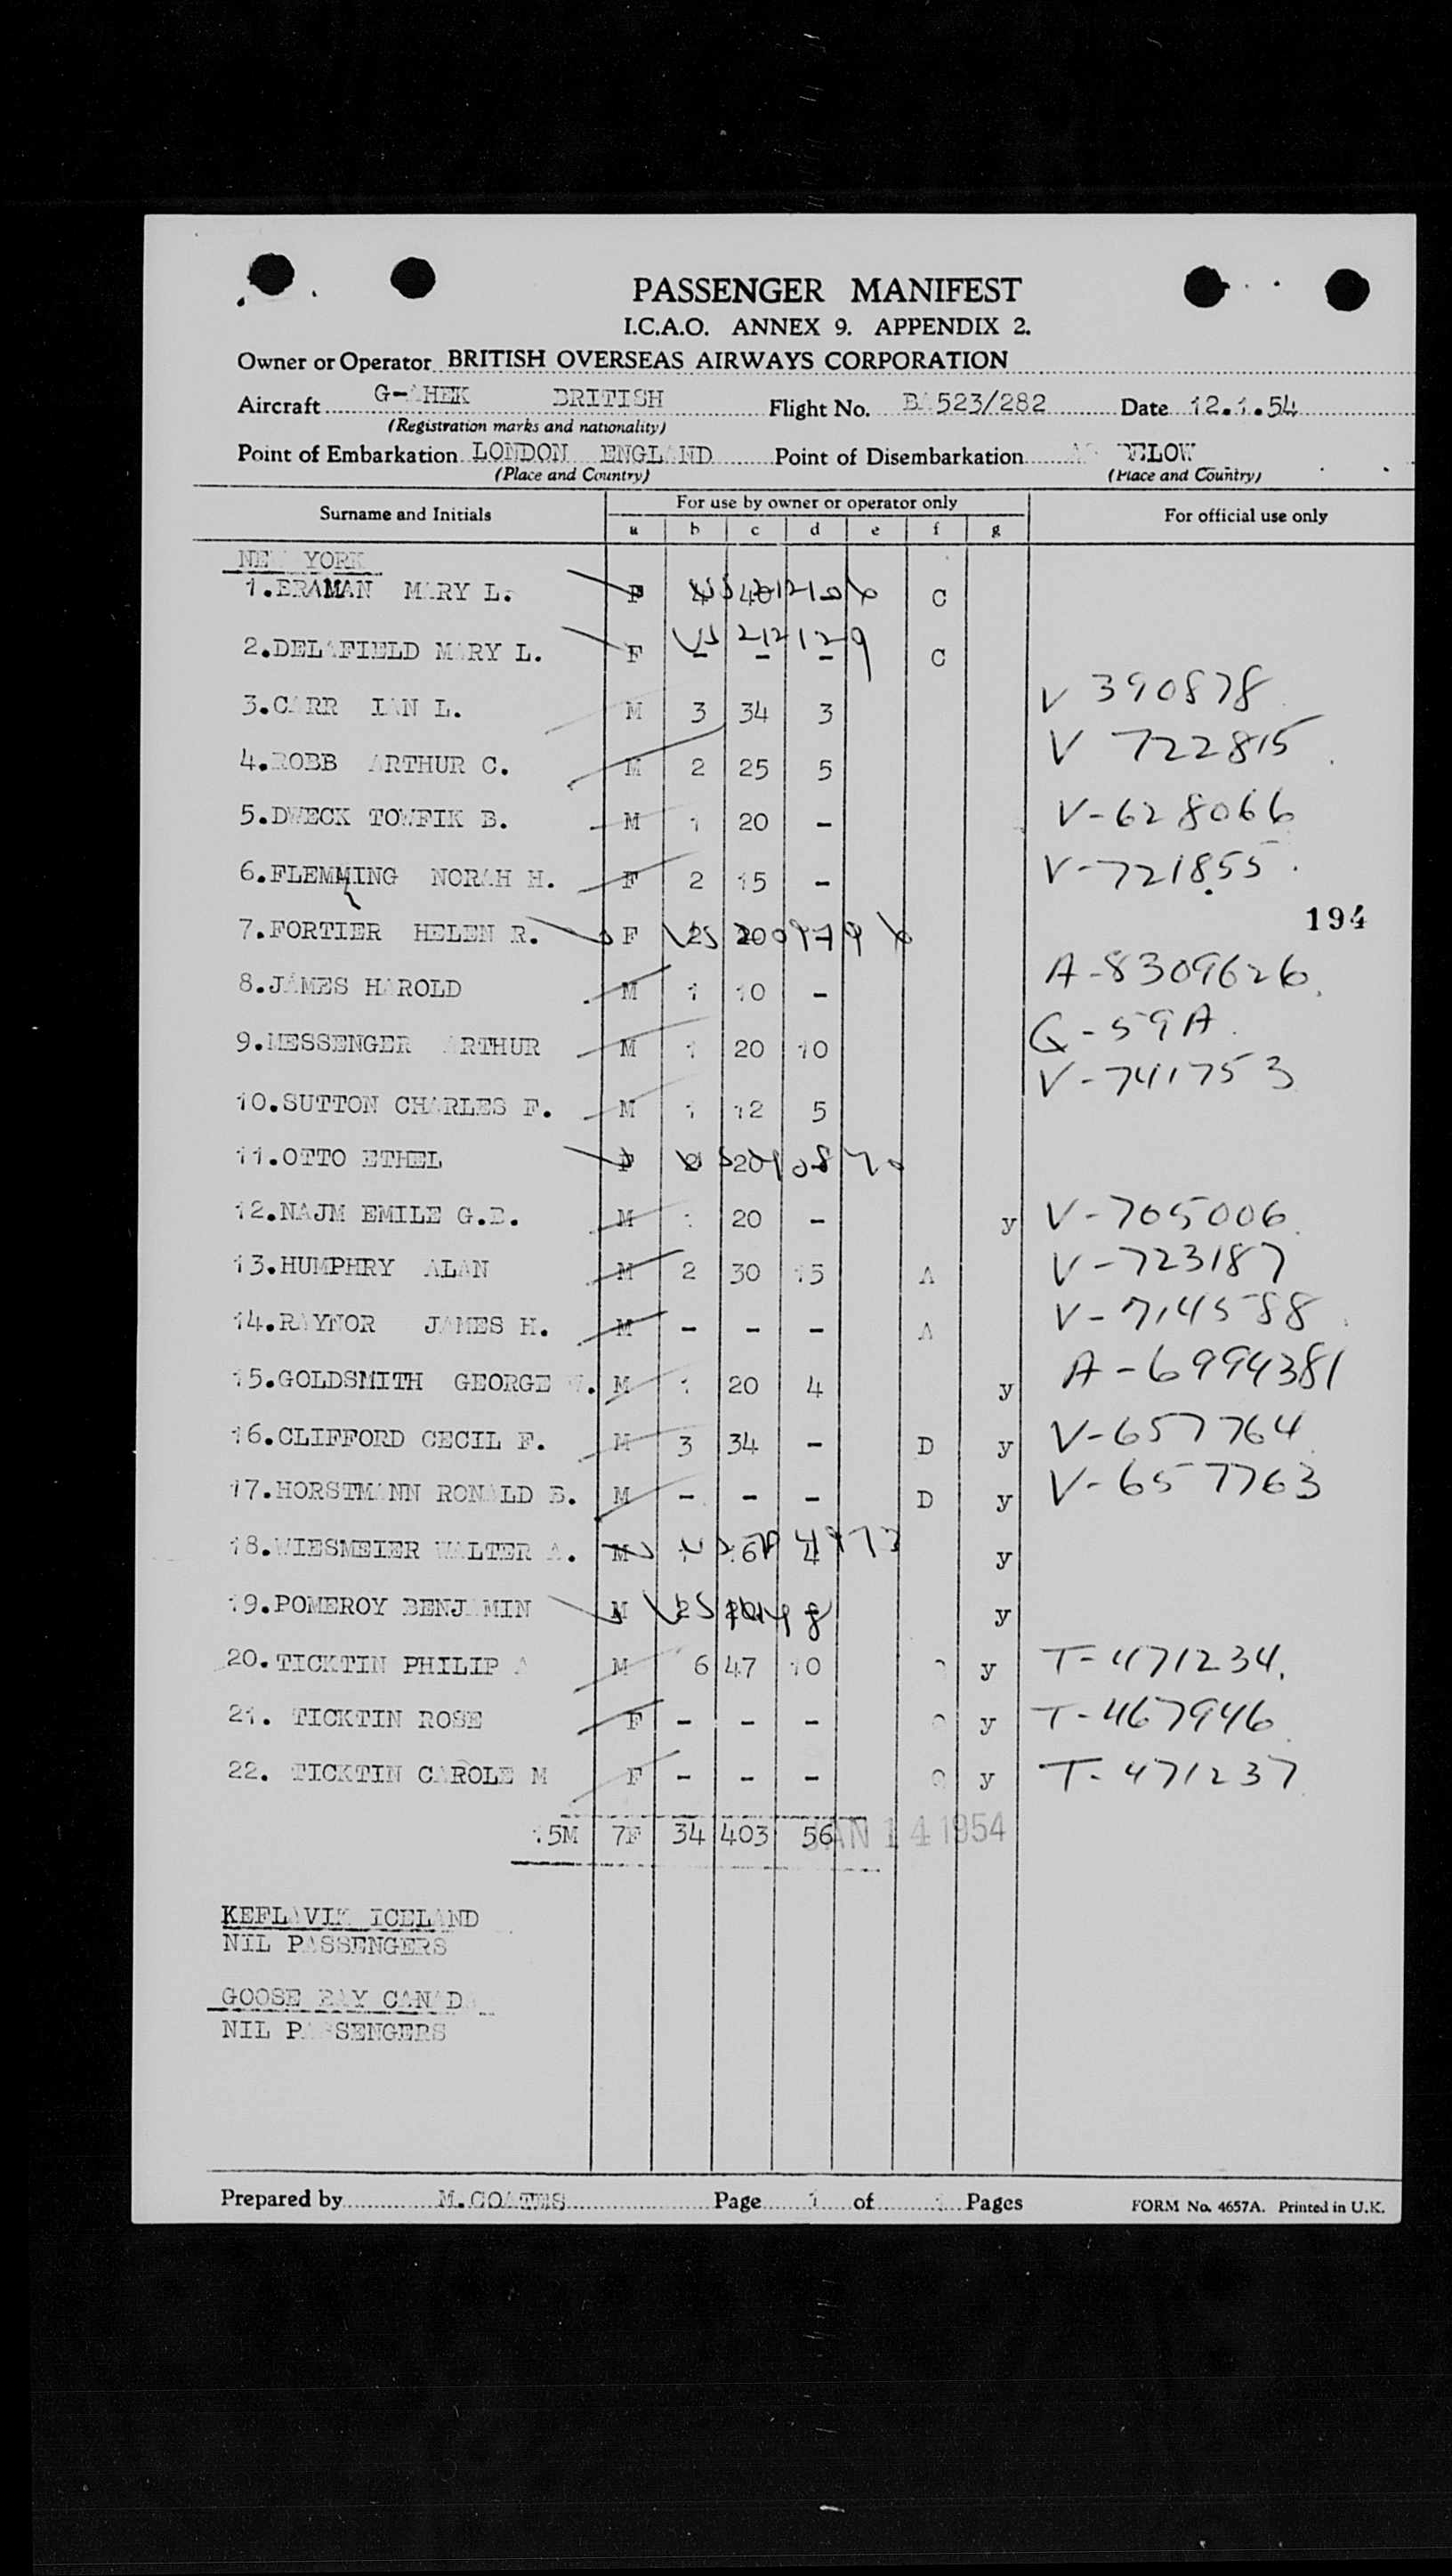 PASSENGER MANIFEST
I.C.A.O. ANNEX 9. APPENDIX 2.
Owner or Operator BRITISH OVERSEAS AIRWAYS CORPORATION
Aircraft G-AHEK BRITISH Flight No. BA523/282 Date 12.1.54
(Registration marks and nationality)
Point of Embarkation LONDON ENGLAND Point of Disembarkation AS BELOW
(Place and Country) (Place and Country)
Surname and Initials For use by owner or operator only For official use only
a b c d e f g
NEW YORK
1. MARY L. F C
2.DELAFIELD MARY L. F US 212129 - - - C
3.CARR IAN L. M 3 34 3 V 390878
4.ROBB ARTHUR C. M 2 25 5 V 722815
5.DWECK TOWFIK B. M 1 20 - V-628066
6.FLEMMING NORAH H. F 2 15 - V-721855
194
7.FORTIER HELEN R. F 20
8.JAMES HAROLD M 1 10 - A-8309626
9.MESSENGER ARTHUR M 1 20 10 G-59A
10.SUTTON CHARLES F. M 1 12 5 V-741753
11.OTTO ETHEL F 20
12.NAJM EMILE G.B. M 1 20 - y V-705006
13.HUMPHRY ALAN M 2 30 15 A V-723187
14.RAYNOR JAMES H. M - - - A V-714588
15.GOLDSMITH GEORGE M 1 20 4 y A-6994381
16.CLIFFORD CECIL F. M 3 34 - D y V-657764
17.HORSTMANN RONALD B. M - - - D y V-657763
18.WIESMEIER WALTER A. M y
19.POMEROY BENJAMIN M y
20.TICKTIN PHILIP A M 6 47 10 y T-471234
21. TICKTIN ROSE F - - - y T-467946
22. TICKTIN CAROLE M F - - - y T-471237
15M 7F 34 403 56 JAN 14 1954
KEFLAVIK ICELAND
NIL PASSENGERS
GOOSE BAY CANADA
NIL PASSENGERS
Prepared by M.COATES Page 1 of 1 Pages FORM No. 4657A. Printed in U.K.